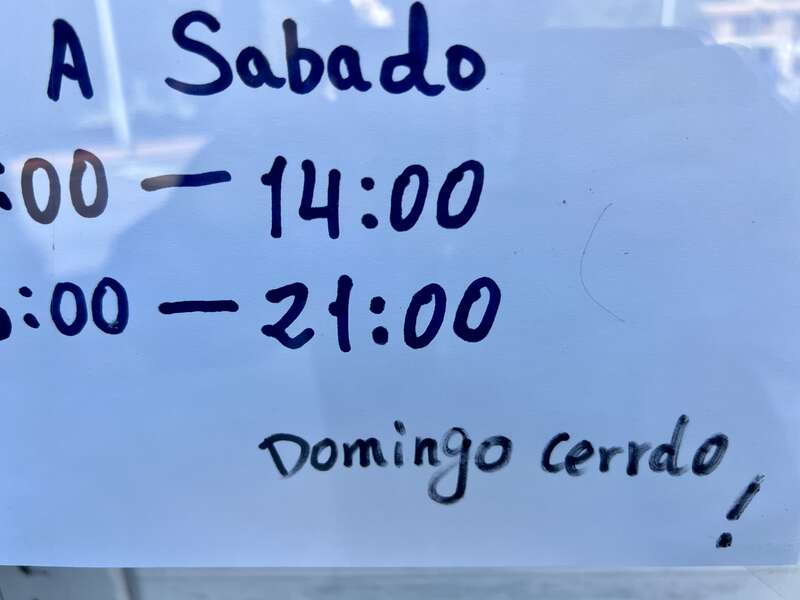 A Sabado
:00 — 14:00
:00 — 21:00
Domingo cerrdo!